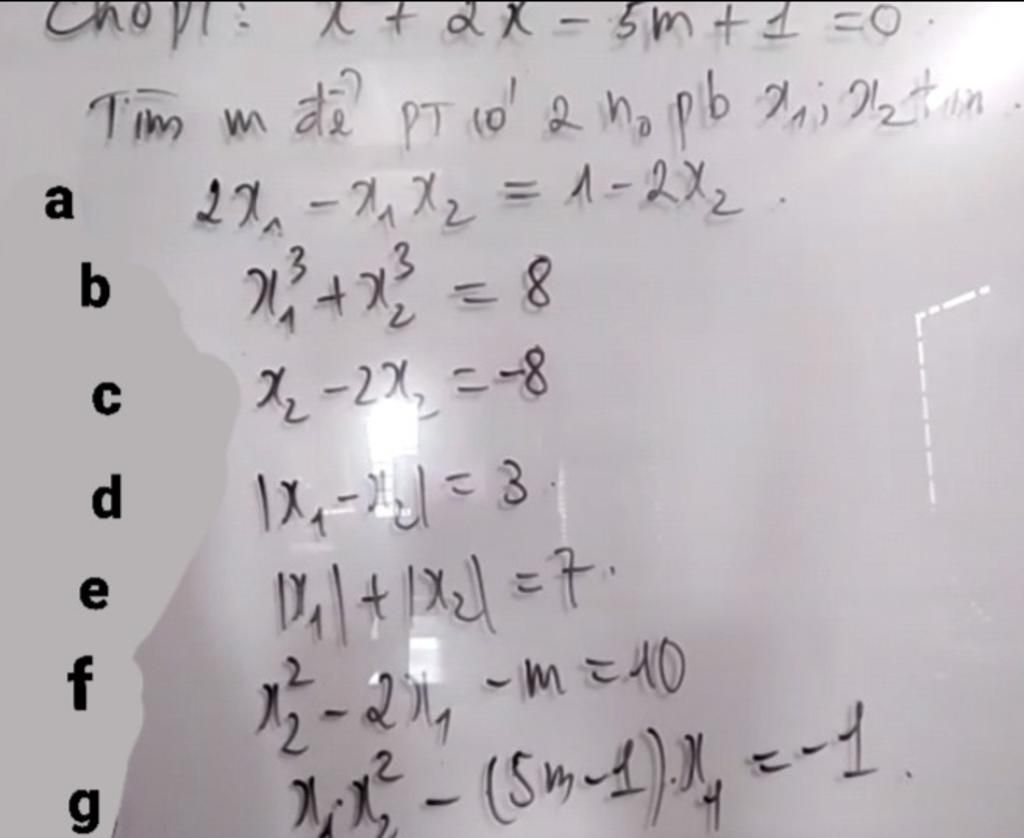 Cho pt: x + 2x - 5m + 1 = 0.
Tìm m để PT có 2 n₀ pb x₁; x₂ t/m.
a 2x₁ - x₁x₂ = 1 - 2x₂.
b x₁³ + x₂³ = 8
c x₂ - 2x₂ = -8
d |x₁ - x₂| = 3.
e |x₁| + |x₂| = 7.
f x₂² - 2x₁ - m = 10
g x₁.x₂² - (5m-1).x₁ = -1.